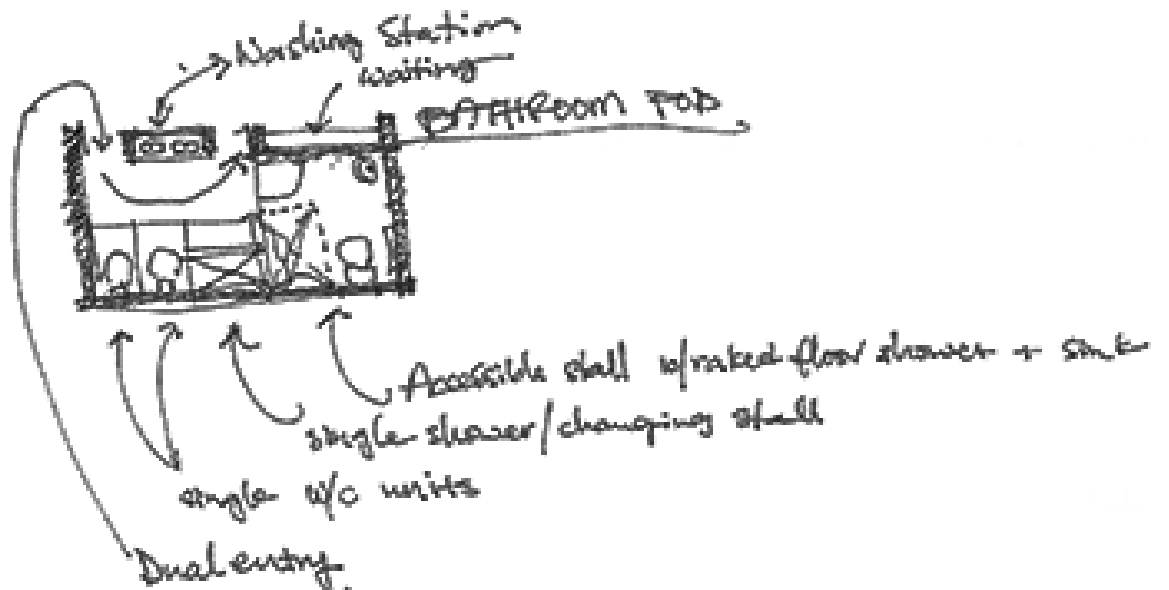 Washing Station
waiting
BATHROOM POD
Accessible stall w/raked floor shower + sink
single shower/changing stall
single w/c units
Dual entry